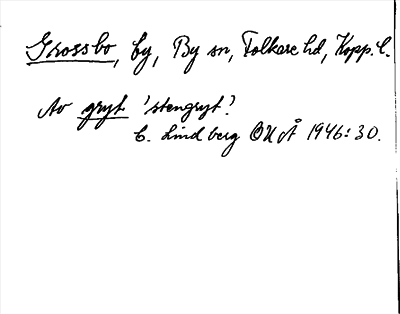 Grossbo, by, By sn, Folkare hd, Kopp. l.
Av gryt 'stengryt'?
C. Lindberg OUÅ 1946:30.